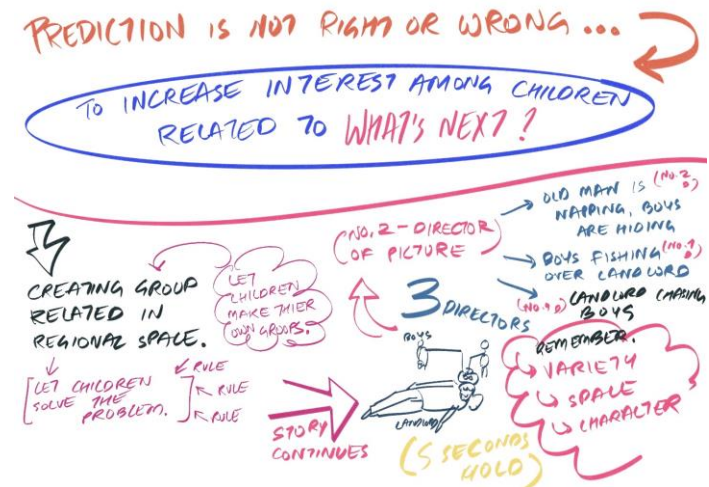 PREDICTION IS NOT RIGHT OR WRONG ...
TO INCREASE INTEREST AMONG CHILDREN
RELATED TO WHAT'S NEXT ?
CREATING GROUP
RELATED IN
REGIONAL SPACE.
LET
CHILDREN
MAKE THIER
OWN GROUPS.
LET CHILDREN
SOLVE THE
PROBLEM.
RULE
RULE
RULE
STORY
CONTINUES
(NO. 2 - DIRECTOR
OF PICTURE)
3 DIRECTORS
BOYS
LANDLORD
(5 SECONDS
HOLD)
OLD MAN IS (NO. 2
NAPPING, BOYS
ARE HIDING
BOYS FISHING
OVER LANDLORD
LANDLORD CHASING
BOYS
REMEMBER.
VARIETY
SPACE
CHARACTER